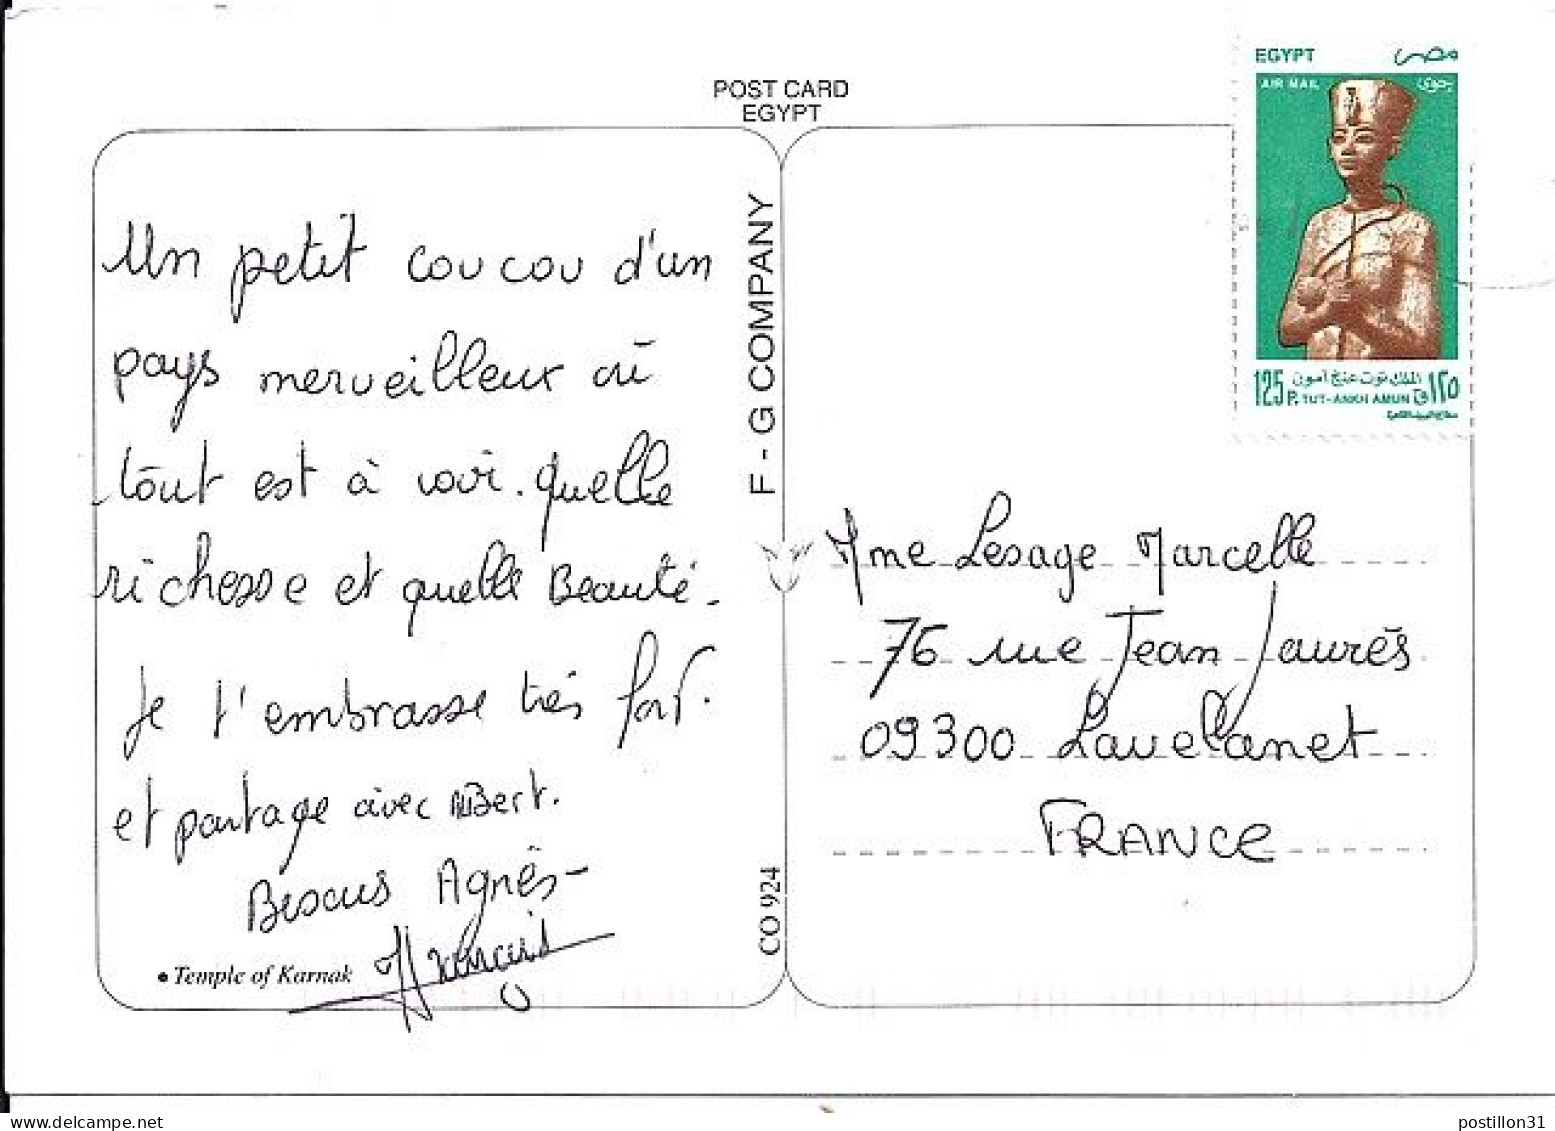 POST CARD
EGYPT
EGYPT مصر
AIR MAIL بريد جوى
الملك توت عنخ آمون
125 P. TUT-ANKH AMUN ق ١٢٥
Un petit coucou d'un
pays merveilleux où
tout est à voir. quelle
richesse et quelle Beauté.
Je t'embrasse très fort.
et partage avec Albert.
Bisous Agnès
Francis
• Temple of Karnak
F - G COMPANY
CO 924
Mme Lesage Marcelle
76 rue Jean Jaurès
09300 Lavelanet
FRANCE
postillon31